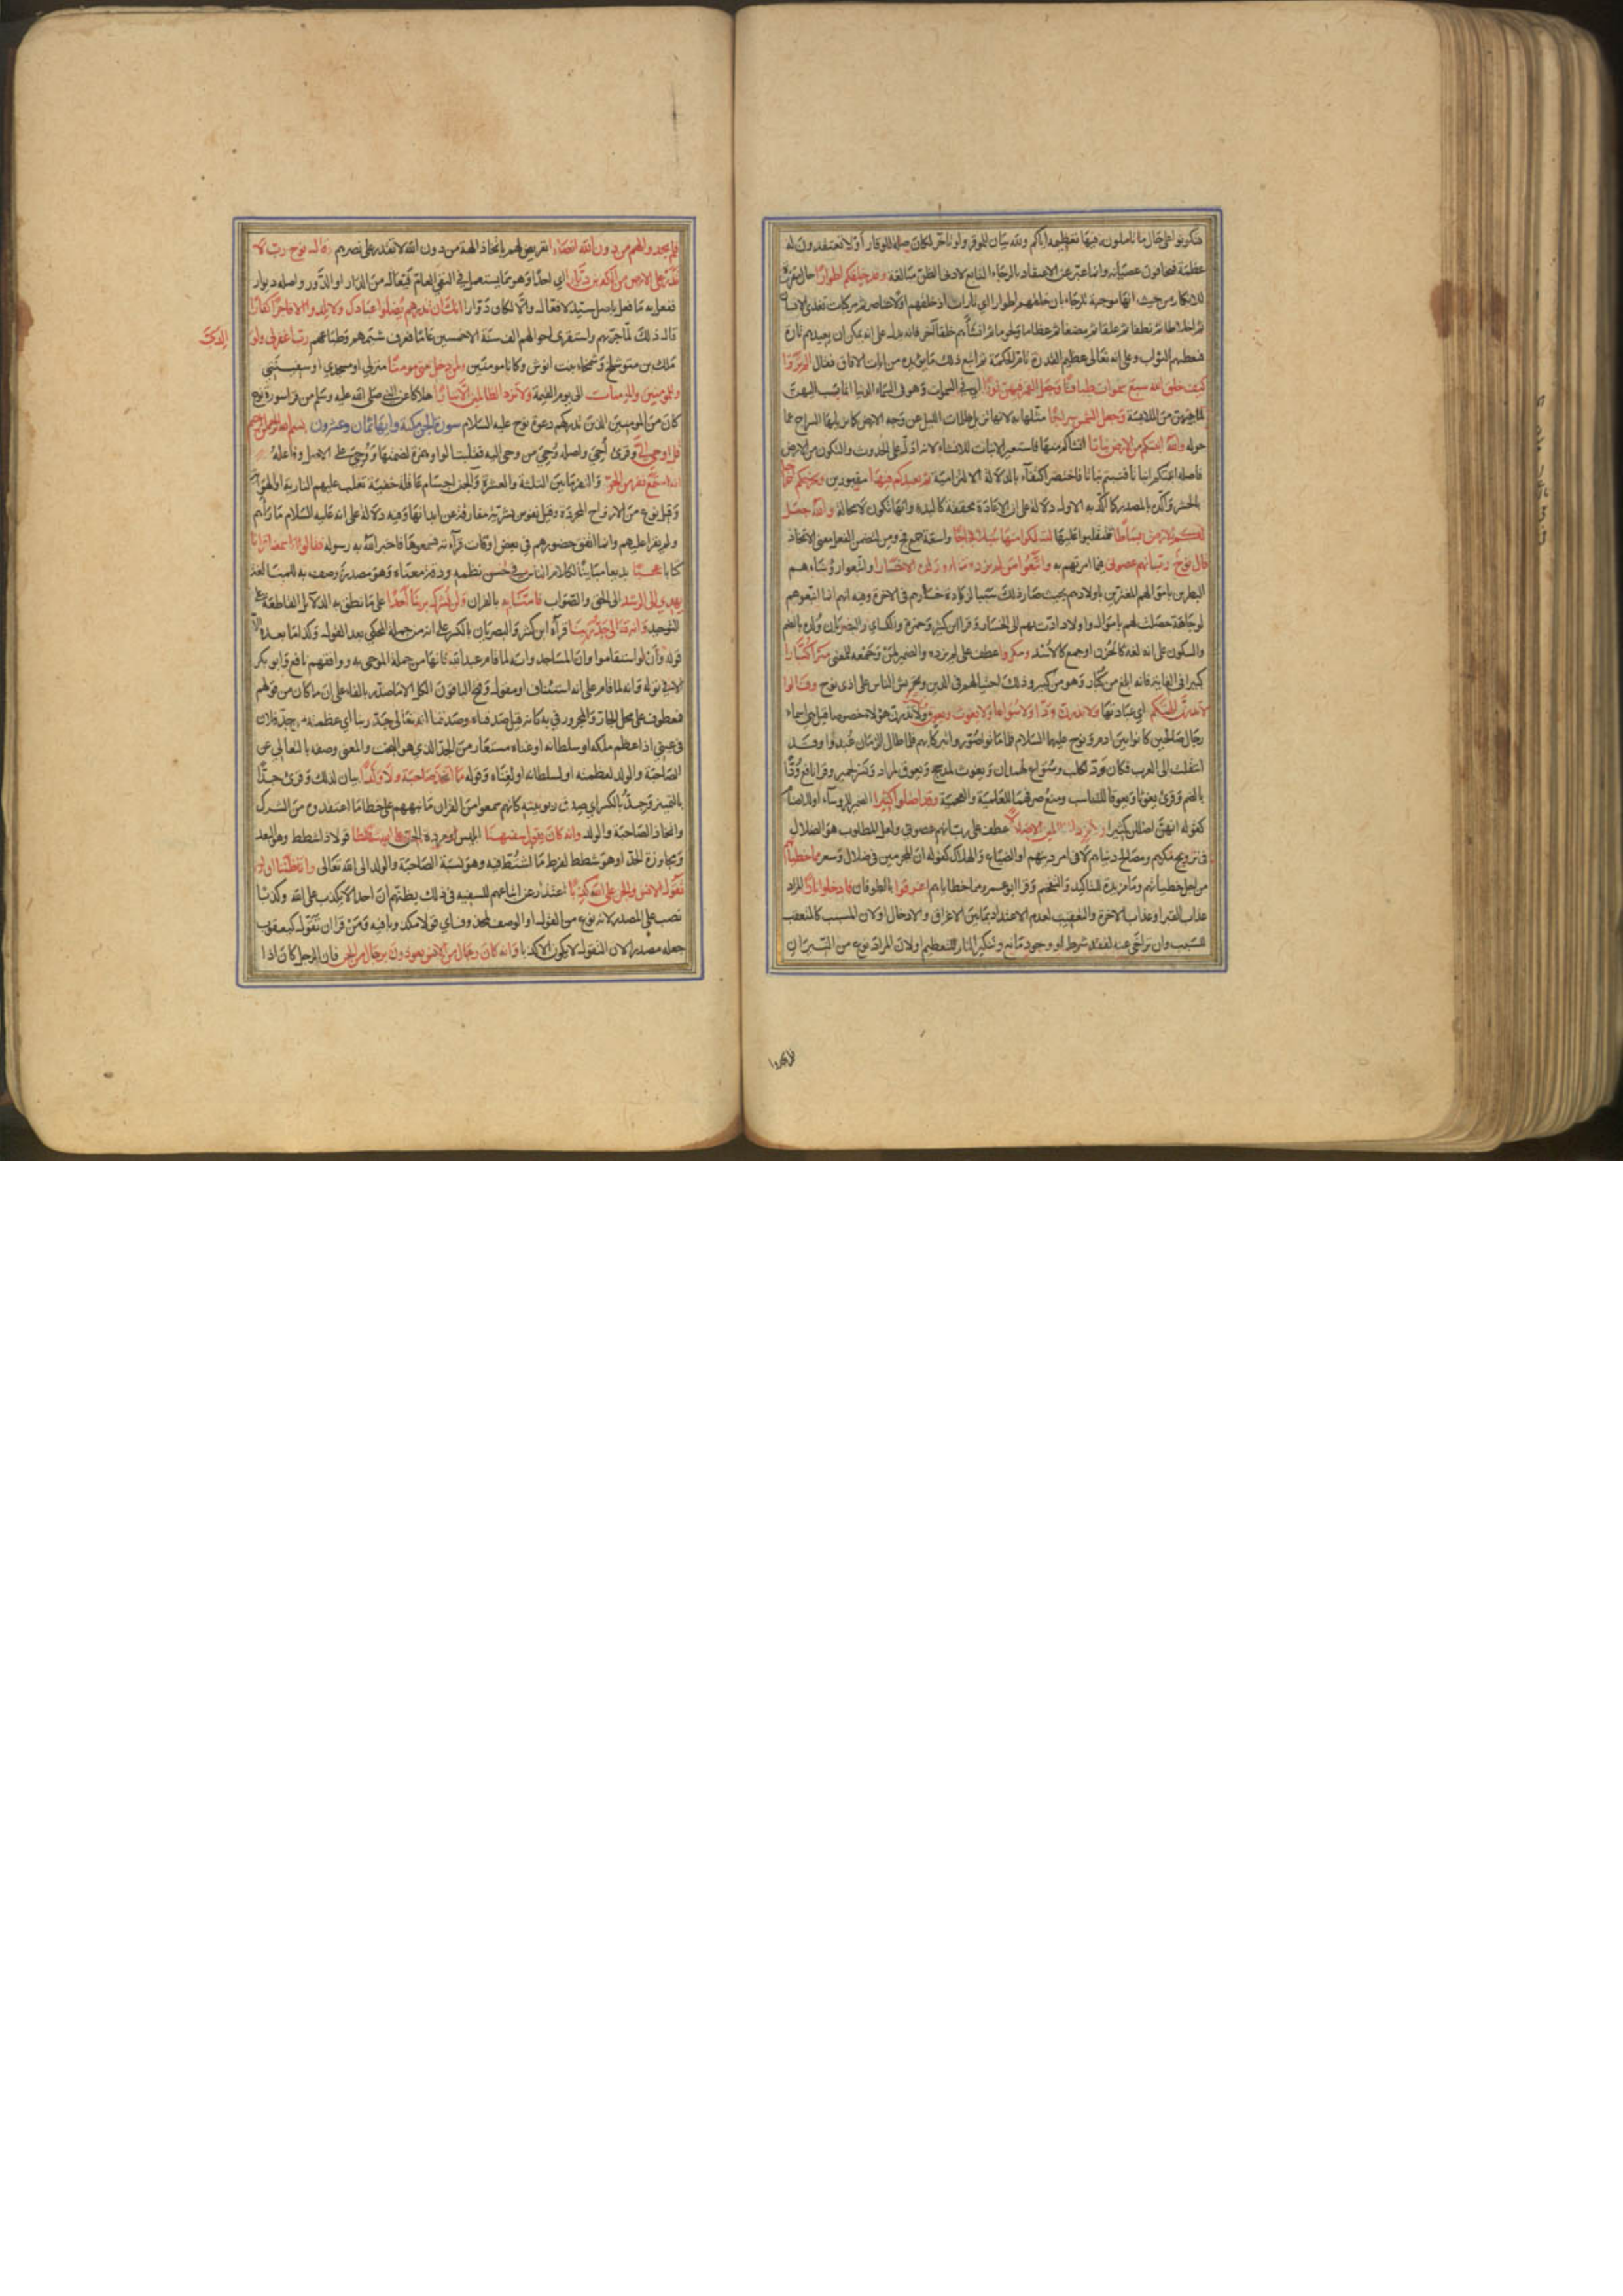 فتكونوا على حال تأملون فيها تعظيمه اياكم ولله بيان للموقر ولو تاخر لكان صلة للوقار أو لا تعتقدون له
عظمة فتخافون عصيانه وانما عبر عن الاعتقاد بالرجاء التابع لادنى الظن مبالغة وقد خلقكم اطوارا حال مقررة
للانكار من حيث انها موجبة للرجاء بان خلقهم اطوارا اي تارات اذ خلقهم اولا عناصر ثم مركبات تغذي الانسان
ثم اخلاطا ثم نطفا ثم علقا ثم مضغا ثم عظاما ولحوما ثم انشأهم خلقا آخر فانه يدل على انه يمكن ان يعيدهم تارة
فيعظمهم بالثواب وعلى انه تعالى عظيم القدرة تام الحكمة ثم اتبع ذلك ما يؤيده من ايات الافاق فقال الم تروا
كيف خلق الله سبع سموات طباقا وجعل القمر فيهن نورا اي في السموات وهو في السماء الدنيا انما نسب اليهن
لما بينهن من الملابسة وجعل الشمس سراجا مثلها به لانها تزيل ظلمات الليل عن وجه الارض كما يزيلها السراج عما
حوله والله انبتكم من الارض نباتا انشاكم منها فاستعير الانبات للانشاء لانه ادل على الحدوث والتكون من الارض
فاصله انبتكم انباتا فنبتم نباتا فاختصر اكتفآء بالدلالة الالتزامية ثم يعيدكم فيها مقبورين ويخرجكم اخراجا
بالحشر وأكده بالمصدر كما اكد به الاول دلالة على ان الاعادة محققة كالبدء وانها تكون لا محالة والله جعل
لكم الارض بساطا تتقلبوا عليها لتسلكوا منها سبلا فجاجا واسعة جمع فج ومن لتضمن الفعل معنى الاتخاذ
قال نوح رب انهم عصوني فيما امرتهم به واتبعوا من لم يزده ماله وولده الا خسارا واتبعوا رؤساءهم
البطرين باموالهم المغترين باولادهم بحيث صار ذلك سببا لزيادة خسارهم في الاخرة وفيه انهم انما اتبعوهم
لوجاهة حصلت لهم باموال واولاد ادت بهم الى الخسار وقرا ابن كثير وحمزة والكسائي والبصريان وولده بالضم
والسكون على انه لغة كالحزن او جمع كالاسد ومكروا عطف على لم يزده والضمير لمن وجمعه للمعنى مكرا كبارا
كبيرا في الغاية فانه ابلغ من كبار وهو من كبير وذلك احتيالهم في الدين وتحريش الناس على اذى نوح وقالوا
لا تذرن الهتكم اي عبادتها ولا تذرن ودا ولا سواعا ولا يغوث ويعوق ونسرا ولا تذرن هؤلاء خصوصا قيل هي اسماء
رجال صالحين كانوا بين ادم ونوح عليهما السلام فلما ماتوا صوروا تبركا بهم فلما طال الزمان عبدوا وقد
انتقلت الى العرب فكان ود لكلب وسواع لهمدان ويغوث لمذحج ويعوق لمراد ونسر لحمير وقرا نافع ودا
بالضم وقرئ يغوثا ويعوقا للتناسب ومنع صرفهما للعلمية والعجمية وقد اضلوا كثيرا الضمير للرؤساء او للاصنام
كقوله انهن اضللن كثيرا ولا تزد الظالمين الا ضلالا عطف على رب انهم عصوني ولعل المطلوب هو الضلال
في ترويج مكرهم ومصالح دنياهم لا في امر دينهم او الضياع والهلاك كقوله ان المجرمين في ضلال وسعر مما خطيآتهم
من اجل خطيأتهم وما مزيدة للتاكيد والتفخيم وقرا ابو عمرو مما خطاياهم اغرقوا بالطوفان فادخلوا نارا المراد
عذاب القبر او عذاب الاخرة والتعقيب لعدم الاعتداد بما بين الاغراق والادخال او لان المسبب كالمتعقب
للسبب وان تراخى عنه لفقد شرط او وجود مانع وتنكير النار للتعظيم او لان المراد نوع من النيران
فلم يجدوا
فلم يجدوا لهم من دون الله انصارا تعريض لهم باتخاذ الهة من دون الله لا تقدر على نصرهم وقال نوح رب لا
تذر على الارض من الكافرين ديارا اي احدا وهو مما يستعمل في النفي العام فيعال من الدار او الدور واصله ديوار
ففعل به ما فعل باصل سيد لا فعال والا لكان دوارا انك ان تذرهم يضلوا عبادك ولا يلدوا الا فاجرا كفارا
قال ذلك لما جربهم واستقرى احوالهم الف سنة الا خمسين عاما فعرف شيمهم وطباعهم رب اغفر لي ولوالدي
ملك بن متوشلخ وشمخاء بنت انوش وكانا مومنين ولمن دخل بيتي مومنا منزلي او مسجدي او سفينتي
وللمومنين والمومنات الى يوم القيمة ولا تزد الظالمين الا تبارا هلاكا عن النبي صلى الله عليه وسلم من قرا سورة نوح
كان من المومنين الذين تدركهم دعوة نوح عليه السلام سورة الجن مكية وايها ثمان وعشرون بسم الله الرحمن الرحيم
قل اوحي الي وقرئ أحي واصله وحي من وحى اليه فقلبت الواو همزة لضمتها ووحي على الاصل وفاعله
انه استمع نفر من الجن والنفر ما بين الثلثة والعشرة والجن اجسام عاقلة خفية تغلب عليهم النارية او الهوائية
وقيل نوع من الارواح المجردة وقيل نفوس بشرية مفارقة عن ابدانها وفيه دلالة على انه عليه السلام ما رآهم
ولم يقرا عليهم وانما اتفق حضورهم في بعض اوقات قرآءته فسمعوها فاخبر الله به رسوله فقالوا انا سمعنا قرانا
كتابا عجبا بديعا مباينا لكلام الناس في حسن نظمه ودقة معناه وهو مصدر وصف به للمبالغة
يهدي الى الرشد الى الحق والصواب فآمنا به بالقران ولن نشرك بربنا احدا على ما نطق به الدلايل القاطعة على
التوحيد وانه تعالى جد ربنا قرآه ابن كثير والبصريان بالكسر على انه من جملة المحكي بعد القول وكذا ما بعده الا
قوله وأن لو استقاموا وان المساجد وانه لما قام عبد الله فانها من جملة الموحى به ووافقهم نافع وابو بكر
الا في قوله وانه لما قام على انه استئناف او مقول وفتح الباقون الكل الا ما صدر بالفاء على ان ما كان من قولهم
فمعطوف على محل الجار والمجرور في به كانه قيل صدقناه وصدقنا انه تعالى جد ربنا اي عظمته من جد فلان
في عيني اذا عظم ملكه او سلطانه او غناه مستعار من الجد الذي هو البخت والمعنى وصفه بالتعالي عن
الصاحبة والولد لعظمته او لسلطانه او لغناه وقوله ما اتخذ صاحبة ولا ولدا بيان لذلك وقرئ جدا
بالتمييز وجد بالكسر اي صدق ربوبيته كانهم سمعوا من القران ما نبههم على خطا ما اعتقدوه من الشرك
واتخاذ الصاحبة والولد وانه كان يقول سفيهنا ابليس او مردة الجن على الله شططا قولا ذا شطط وهو البعد
ومجاوزة الحد او هو شطط لفرط ما اشتط فيه وهو نسبة الصاحبة والولد الى الله تعالى وانا ظننا ان لن
تقول الانس والجن على الله كذبا اعتذار عن اتباعهم للسفيه في ذلك بظنهم ان احدا لا يكذب على الله وكذبا
نصب على المصدر لانه نوع من القول او الوصف لمحذوف اي قولا مكذوبا فيه ومن قرا ان تقول كيعقوب
جعله مصدرا لان التقول لا يكون الا كذبا وانه كان رجال من الانس يعوذون برجال من الجن فان الرجل كان اذا